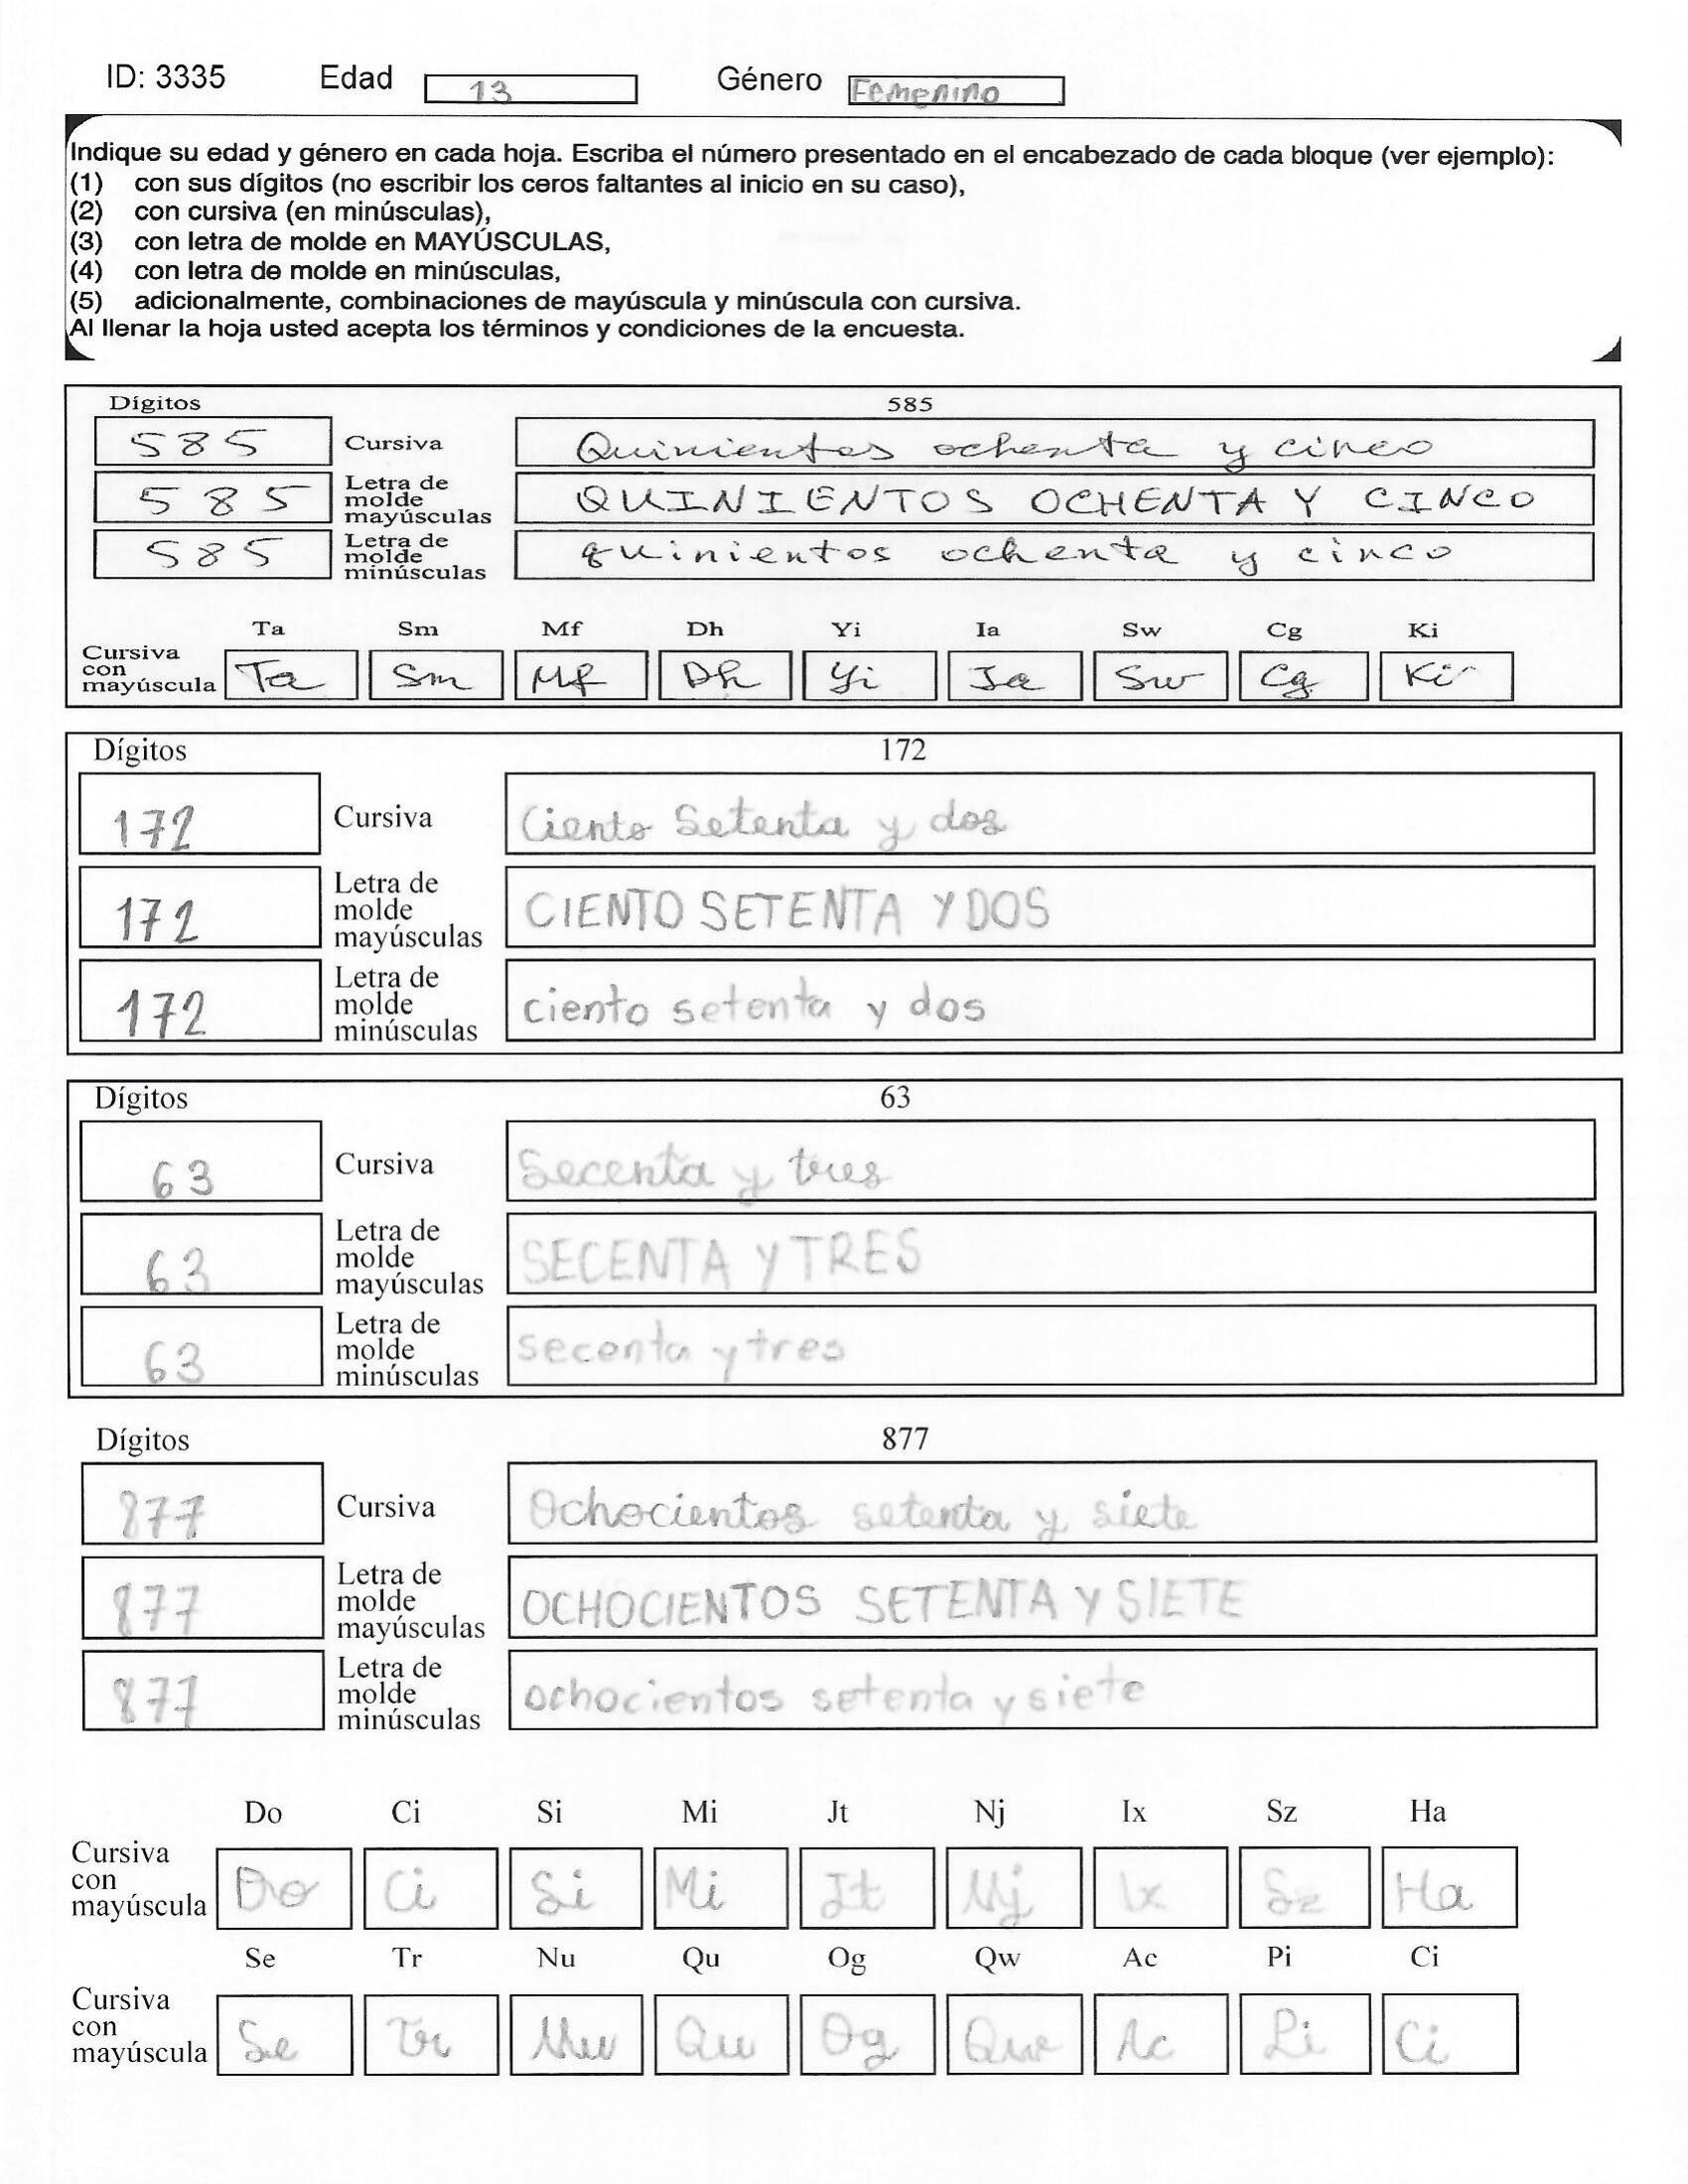 ID: 3335 Edad 13 Género Femenino
Indique su edad y género en cada hoja. Escriba el número presentado en el encabezado de cada bloque (ver ejemplo):
(1) con sus dígitos (no escribir los ceros faltantes al inicio en su caso),
(2) con cursiva (en minúsculas),
(3) con letra de molde en MAYÚSCULAS,
(4) con letra de molde en minúsculas,
(5) adicionalmente, combinaciones de mayúscula y minúscula con cursiva.
Al llenar la hoja usted acepta los términos y condiciones de la encuesta.
Dígitos 585
585 Cursiva Quinientos ochenta y cinco
585 Letra de molde mayúsculas QUINIENTOS OCHENTA Y CINCO
585 Letra de molde minúsculas quinientos ochenta y cinco
Ta Sm Mf Dh Yi Ia Sw Cg Ki
Cursiva con mayúscula Ta Sm Mf Dh Yi Ia Sw Cg Ki
Dígitos 172
172 Cursiva Ciento Setenta y dos
172 Letra de molde mayúsculas CIENTO SETENTA Y DOS
172 Letra de molde minúsculas ciento setenta y dos
Dígitos 63
63 Cursiva Secenta y tres
63 Letra de molde mayúsculas SECENTA Y TRES
63 Letra de molde minúsculas secenta y tres
Dígitos 877
877 Cursiva Ochocientos setenta y siete
877 Letra de molde mayúsculas OCHOCIENTOS SETENTA Y SIETE
877 Letra de molde minúsculas ochocientos setenta y siete
Do Ci Si Mi Jt Nj Ix Sz Ha
Cursiva con mayúscula Do Ci Si Mi Jt Nj Ix Sz Ha
Se Tr Nu Qu Og Qw Ac Pi Ci
Cursiva con mayúscula Se Tr Nu Qu Og Qw Ac Pi Ci